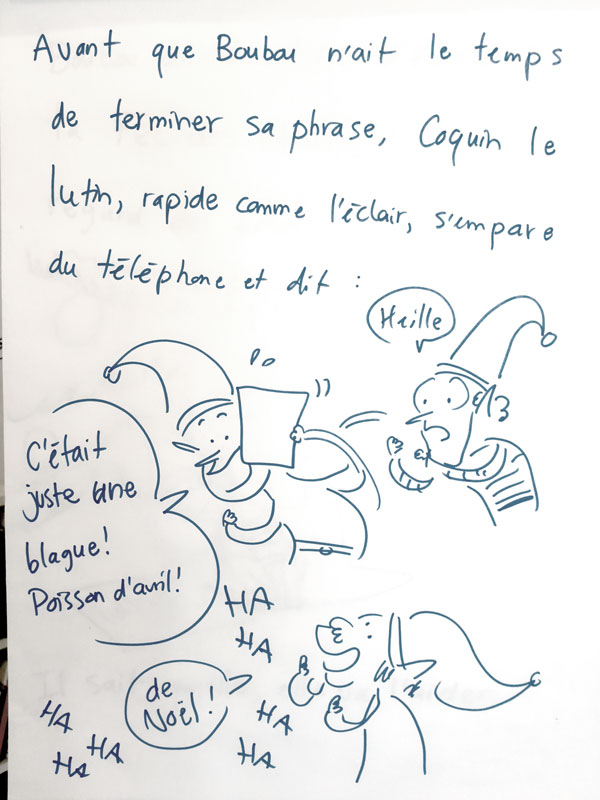 Avant que Boubou n'ait le temps
de terminer sa phrase, Coquin le
lutin, rapide comme l'éclair, s'empare
du téléphone et dit :
Heille
C'était
juste une
blague!
Poisson d'avril!
HA
HA
de
Noël!
HA
HA
HA
HA
HA